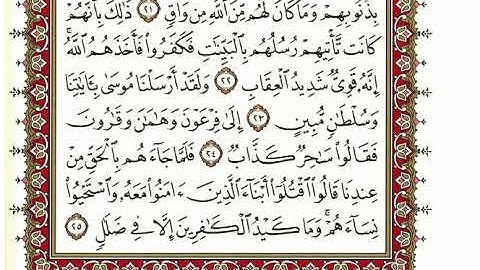 بِذُنُوبِهِمْ وَمَا كَانَ لَهُم مِّنَ ٱللَّهِ مِن وَاقٍ ٢١ ذَٰلِكَ بِأَنَّهُمْ
كَانَت تَّأْتِيهِمْ رُسُلُهُم بِٱلْبَيِّنَٰتِ فَكَفَرُوا۟ فَأَخَذَهُمُ ٱللَّهُ ۚ
إِنَّهُۥ قَوِىٌّ شَدِيدُ ٱلْعِقَابِ ٢٢ وَلَقَدْ أَرْسَلْنَا مُوسَىٰ بِـَٔايَٰتِنَا
وَسُلْطَٰنٍ مُّبِينٍ ٢٣ إِلَىٰ فِرْعَوْنَ وَهَٰمَٰنَ وَقَٰرُونَ
فَقَالُوا۟ سَٰحِرٌ كَذَّابٌ ٢٤ فَلَمَّا جَآءَهُم بِٱلْحَقِّ مِنْ
عِندِنَا قَالُوا۟ ٱقْتُلُوٓا۟ أَبْنَآءَ ٱلَّذِينَ ءَامَنُوا۟ مَعَهُۥ وَٱسْتَحْيُوا۟
نِسَآءَهُمْ ۚ وَمَا كَيْدُ ٱلْكَٰفِرِينَ إِلَّا فِى ضَلَٰلٍ ٢٥